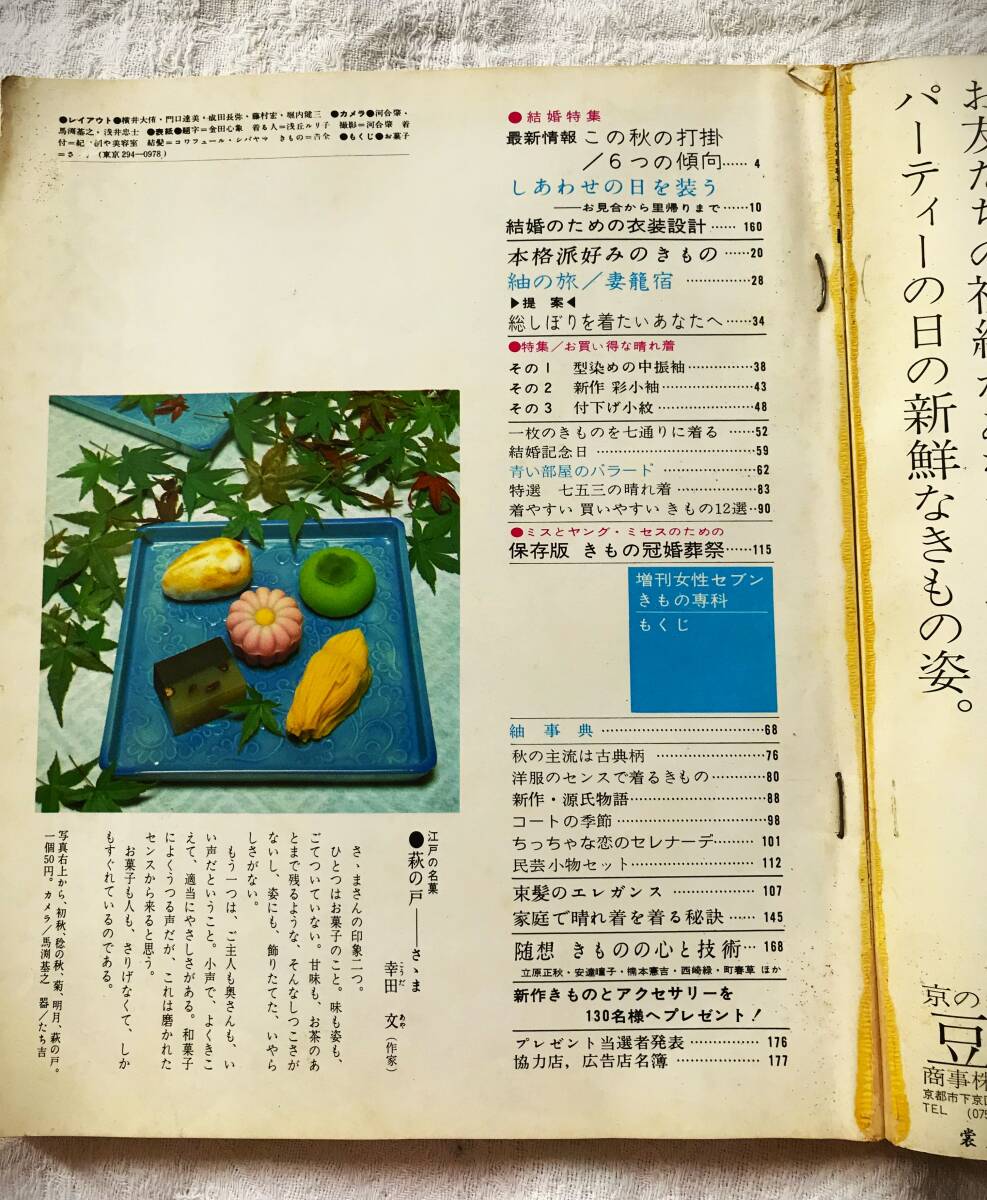 ●レイアウト●横井大侑・門口達美・成田長弥・藤村宏・堀内健三 ●カメラ●河合肇・
馬渕基之・浅井忠士 ●表紙●題字＝金田心象 着る人＝浅丘ルリ子 撮影＝河合肇 着
付＝紀 や美容室 結髪＝コワフュール・シバヤマ きもの＝ 全 ●もくじ●お菓子
＝さ (東京294—0978)
●結婚特集
最新情報 この秋の打掛
／6つの傾向……4
しあわせの日を装う
——お見合から里帰りまで……10
結婚のための衣装設計……160
本格派好みのきもの……20
紬の旅／妻籠宿……28
▶提 案◀
総しぼりを着たいあなたへ……34
●特集／お買い得な晴れ着
その1 型染めの中振袖……38
その2 新作 彩小袖……43
その3 付下げ小紋……48
一枚のきものを七通りに着る……52
結婚記念日……59
青い部屋のバラード……62
特選 七五三の晴れ着……83
着やすい 買いやすい きもの12選‥90
●ミスとヤング・ミセスのための
保存版 きもの冠婚葬祭……115
増刊女性セブン
きもの専科
もくじ
紬事典……68
秋の主流は古典柄……76
洋服のセンスで着るきもの……80
新作・源氏物語……88
コートの季節……98
ちっちゃな恋のセレナーデ……101
民芸小物セット……112
束髪のエレガンス……107
家庭で晴れ着を着る秘訣……145
随想 きものの心と技術…168
立原正秋・安達瞳子・楠本憲吉・西崎緑・町春草 ほか
新作きものとアクセサリーを
130名様へプレゼント！
プレゼント当選者発表……176
協力店，広告店名簿……177
江戸の名菓
●萩の戸——さゝま
幸田 文（作家）
こうだ あや
さゝまさんの印象二つ。
ひとつはお菓子のこと。味も姿も、
ごてついていない。甘味も、お茶のあ
とまで残るような、そんなしつこさが
ないし、姿にも、飾りたてた、いやら
しさがない。
もう一つは、ご主人も奥さんも、い
い声だということ。小声で、よくきこ
えて、適当にやさしさがある。和菓子
によくうつる声だが、これは磨かれた
センスから来ると思う。
お菓子も人も、さりげなくて、しか
もすぐれているのである。
写真右上から、初秋、稔の秋、菊、明月、萩の戸。
一個50円。カメラ／馬渕基之 器／たち吉
お友だちの
パーティーの日の新鮮なきもの姿。
京の
豆
商事株
京都市下京区
TEL (075
裳